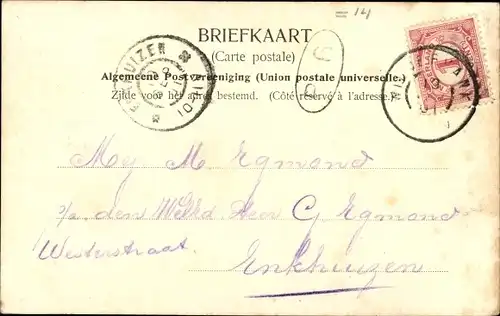 = 14
BRIEFKAART
(Carte postale)
Algemeene Postvereeniging (Union postale universelle.)
Zijde voor het adres bestemd. (Côté réservé à l'adresse.)
1
Mej M. Egmond
p/a den Weled. Heer G. Egmond
Westerstraat
Enkhuizen